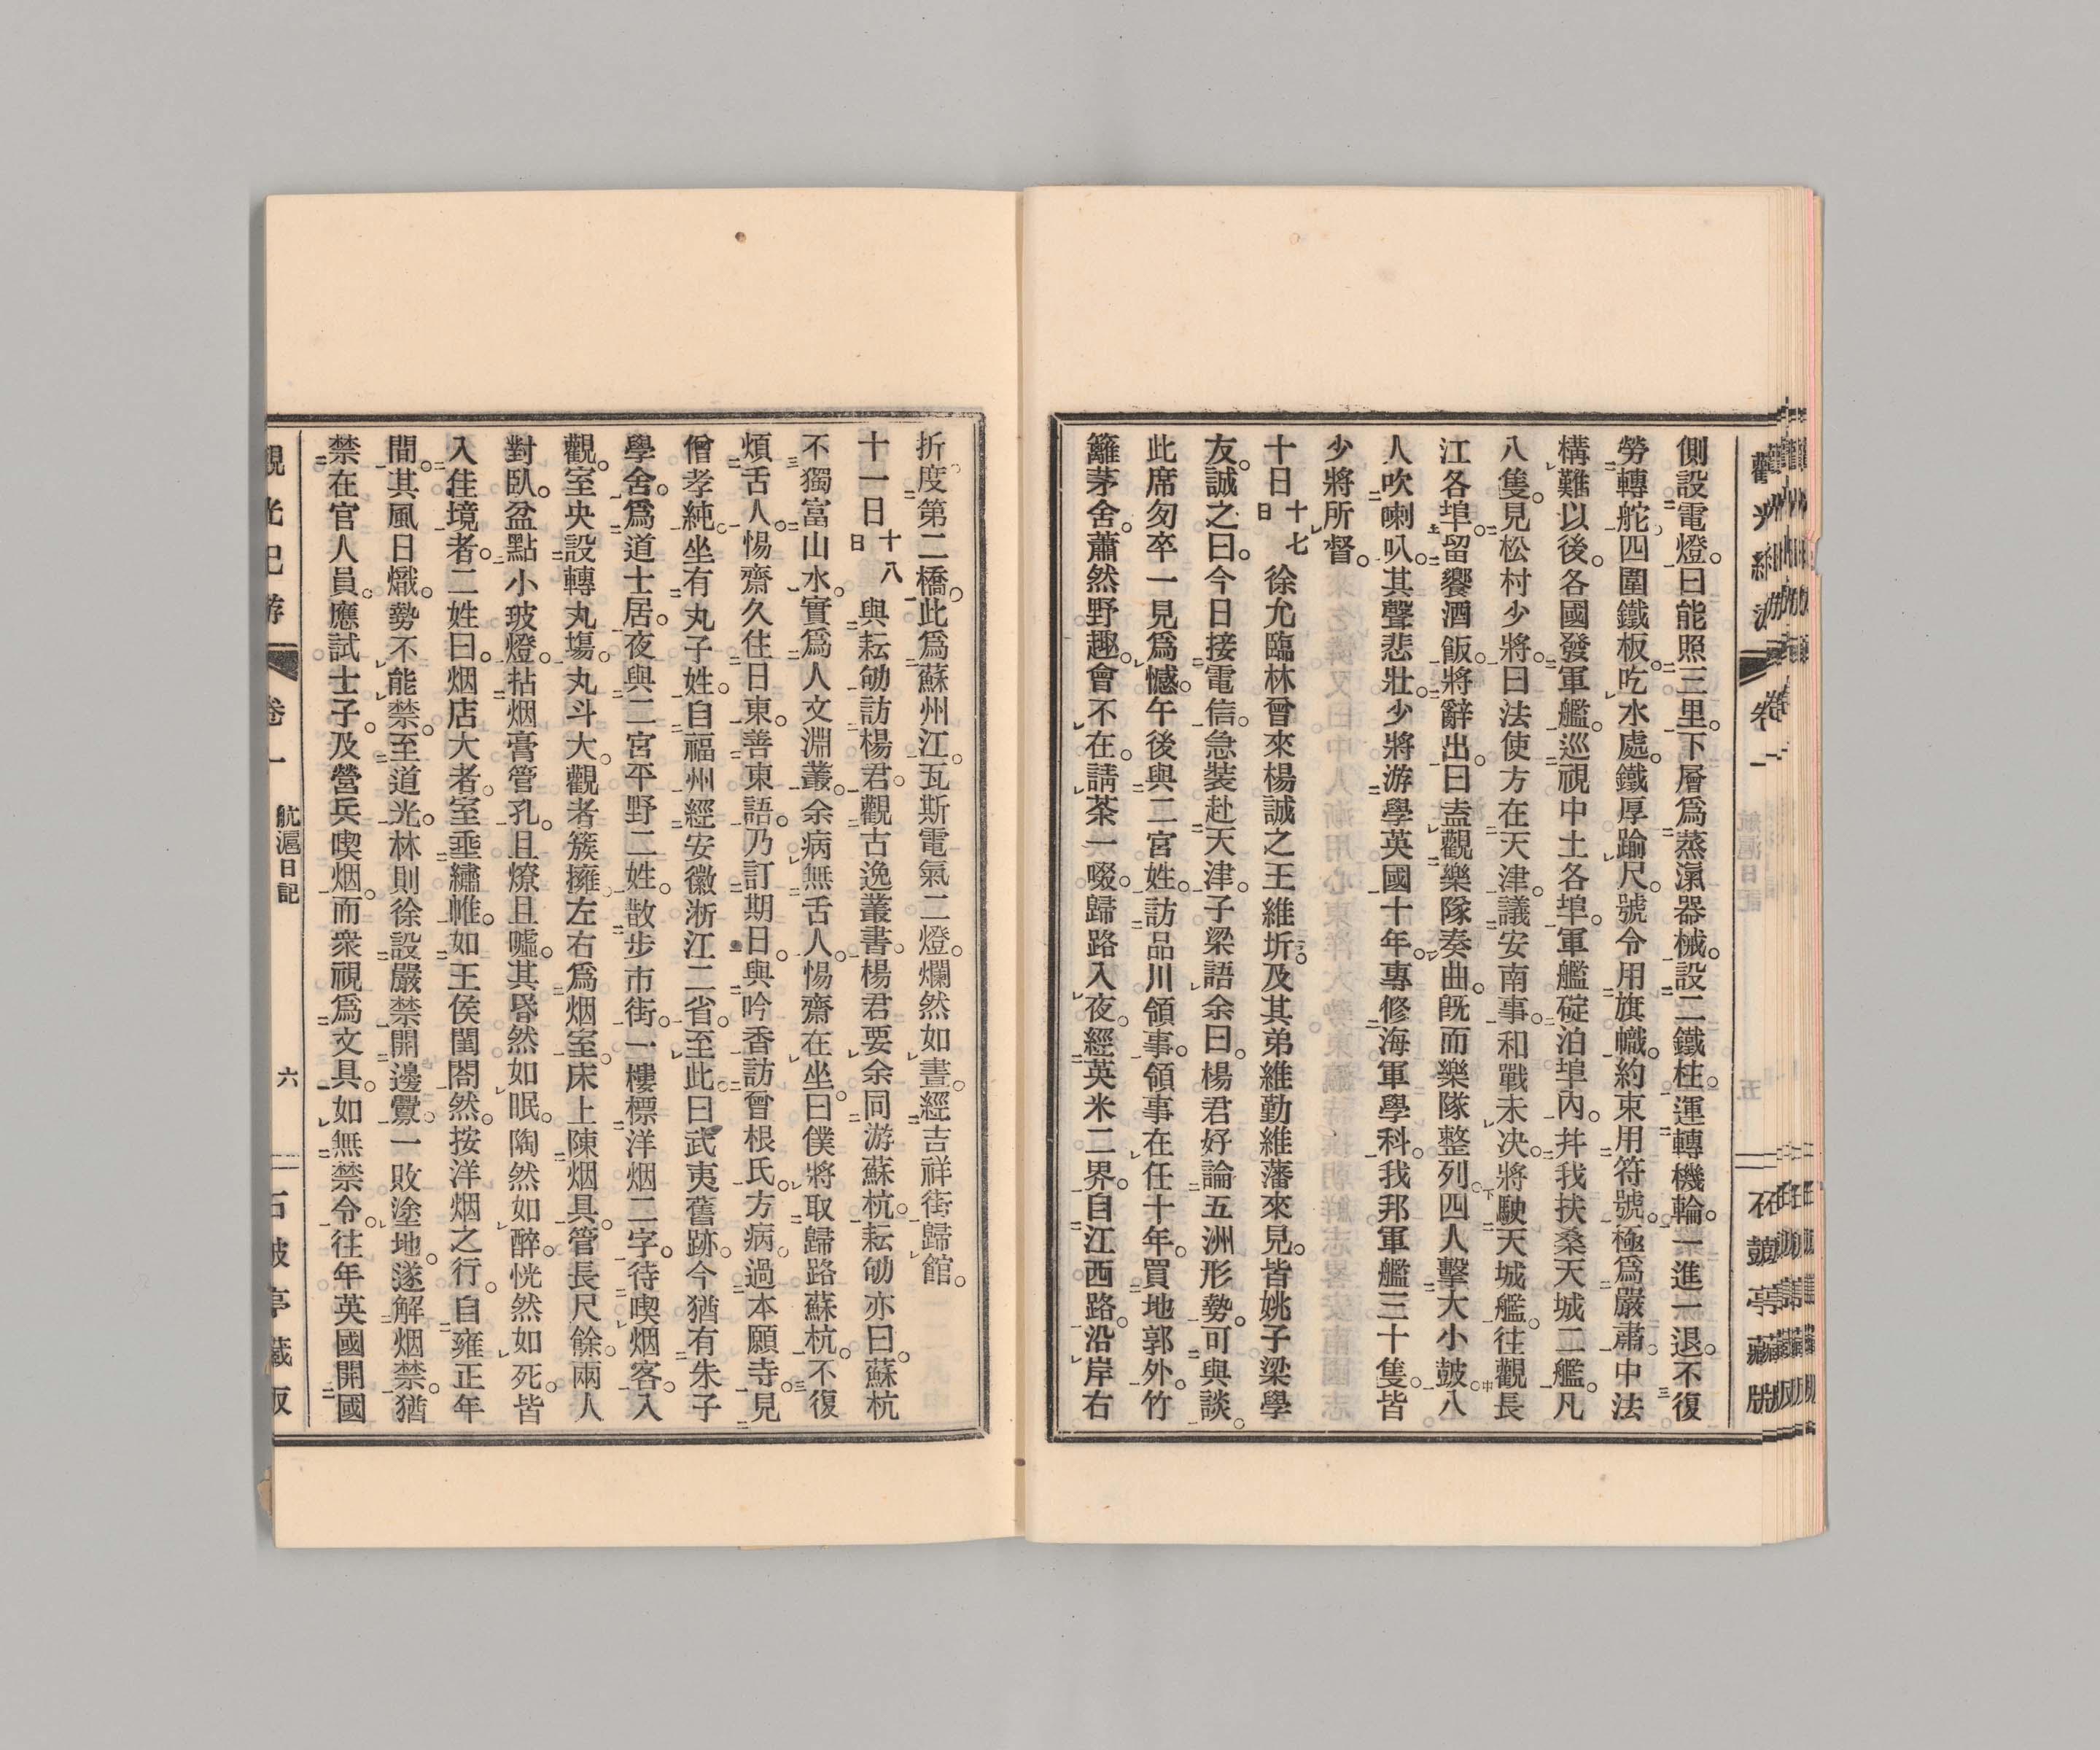 側設電燈。曰能照三里。下層爲蒸滊器械。設二鐵柱。運轉機輪。一進一退。不復
勞轉舵。四圍鐵板。吃水處。鐵厚踰尺。號令用旗幟。約束用符號。極爲嚴肅。中法
構難以後。各國發軍艦。巡視中土各埠。軍艦碇泊埠內。幷我扶桑天城二艦。凡
八隻。見松村少將。曰法使方在天津。議安南事。和戰未決。將駛天城艦。往觀長
江各埠。留饗酒飯。將辭出。曰盍觀樂隊奏曲。既而樂隊整列。四人擊大小皷。八
人吹喇叭。其聲悲壯。少將游學英國十年。專修海軍學科。我邦軍艦三十隻。皆
少將所督。
十日十七日徐允臨林曾來楊誠之王維圻。及其弟維勤維藩來見。皆姚子梁學
友。誠之曰。今日接電信。急裝赴天津。子梁語余曰。楊君好論五洲形勢。可與談。
此席匆卒一見爲憾。午後與二宮姓。訪品川領事。領事在任十年。買地郭外。竹
籬茅舍。蕭然野趣。會不在。請茶一啜。歸路入夜。經英米二界。自江西路。沿岸右
折。度第二橋。此爲蘇州江。瓦斯電氣二燈。爛然如晝。經吉祥街歸館。
十一日十八日與耘劬訪楊君。觀古逸叢書。楊君要余同游蘇杭。耘劬亦曰。蘇杭
不獨富山水。實爲人文淵叢。余病無舌人。惕齋在坐。曰僕將取歸路蘇杭。不復
煩舌人。惕齋久住日東。善東語。乃訂期日。與吟香訪曾根氏。方病。過本願寺。見
僧孝純。坐有丸子姓。自福州經安徽淅江二省。至此。曰武夷舊跡。今猶有朱子
學舍。爲道士居。夜與二宮平野二姓。散步市街。一樓標洋烟二字。待喫烟客。入
觀。室央設轉丸塲。丸斗大。觀者簇擁。左右爲烟室。床上陳烟具。管長尺餘。兩人
對臥。盆點小玻燈。拈烟膏管孔。且燎且噓。其昏然如眠。陶然如醉。恍然如死。皆
入佳境者。二姓曰。烟店大者。室垂繡帷。如王侯閨閤然。按洋烟之行。自雍正年
間。其風日熾。勢不能禁。至道光。林則徐設嚴禁。開邊釁。一敗塗地。遂解烟禁。猶
禁在官人員。應試士子。及營兵喫烟。而衆視爲文具。如無禁令。往年英國開國
觀光紀游　卷一　航滬日記　六　石皷亭藏版